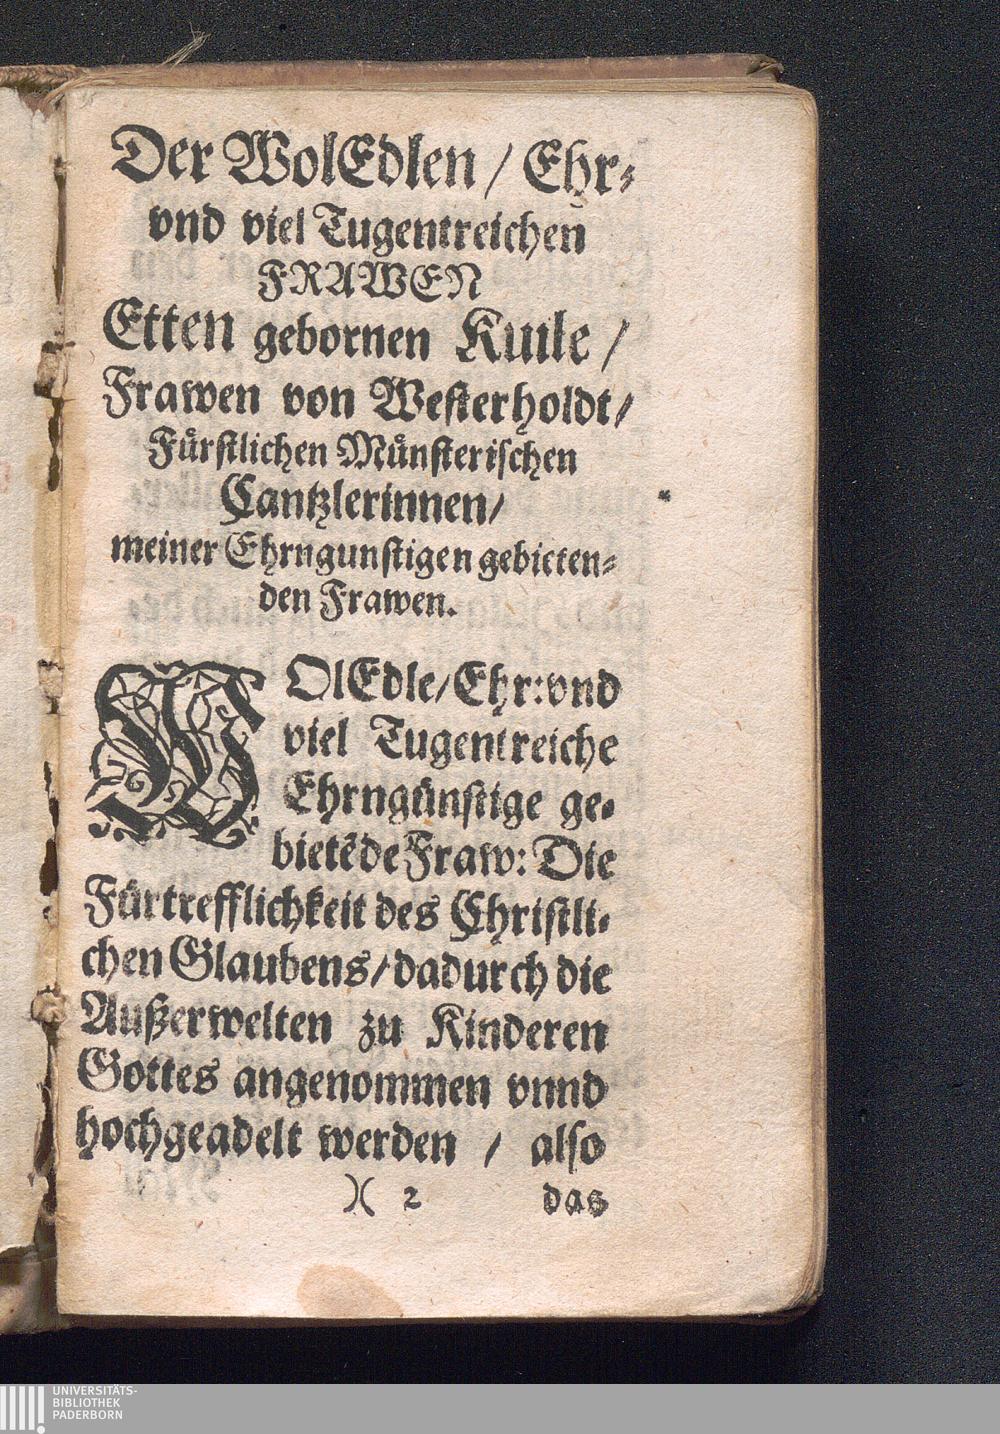 Der WolEdlen / Ehr⸗
vnd viel Tugentreichen
FRAWEN
Etten gebornen Kuile /
Frawen von Westerholdt /
Fuͤrstlichen Muͤnsterischen
Cantzlerinnen /
meiner Ehrngunstigen gebieten⸗
den Frawen.
WOlEdle / Ehr: vnd
viel Tugentreiche
Ehrngünstige ge⸗
bietẽde Fraw: Die
Fürtrefflichkeit des Christli⸗
chen Glaubens / dadurch die
Außerwelten zu Kinderen
Gottes angenommen vnnd
hochgeadelt werden / also
)( 2 das
UNIVERSITÄTS-
BIBLIOTHEK
PADERBORN